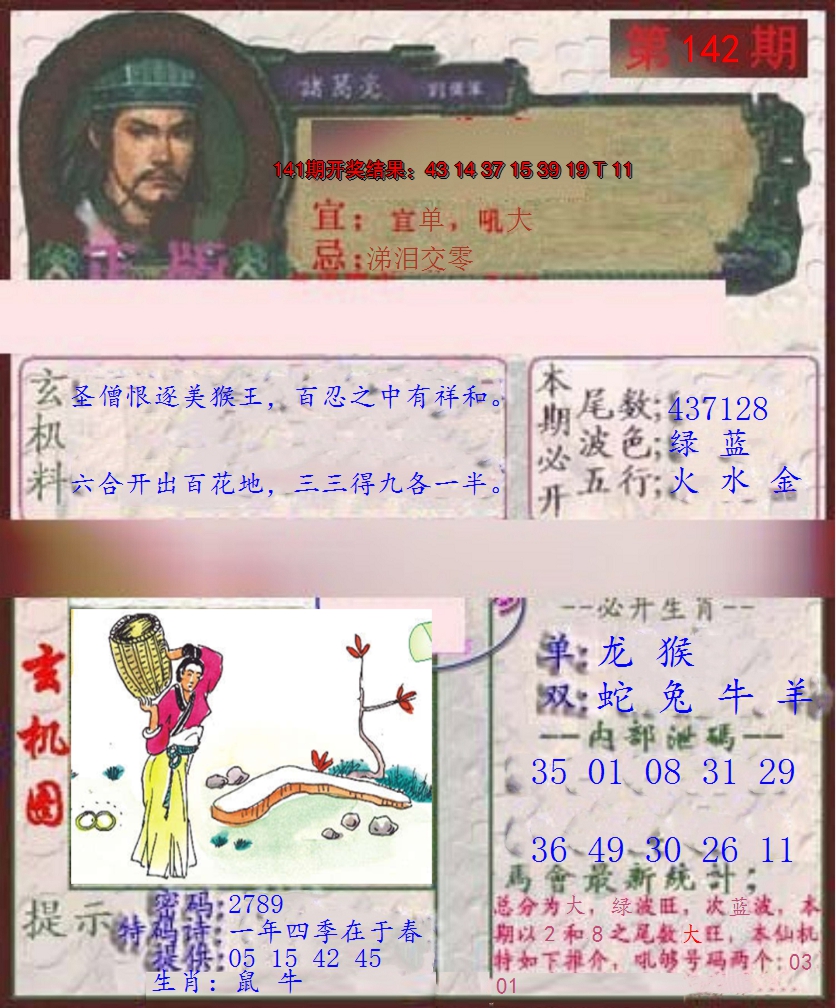 第142期
諸葛亮
141期开奖结果：43 14 37 15 39 19 T 11
宜：宜单，吼大
忌：涕泪交零
正版
玄机料
圣僧恨逐美猴王，百忍之中有祥和。
六合开出百花地，三三得九各一半。
本期必开
尾数;437128
波色;绿 蓝
五行;火 水 金
玄机图
--必开生肖--
单:龙 猴
双:蛇 兔 牛 羊
—内部泄碼—
35 01 08 31 29
36 49 30 26 11
提示
密码:2789
特码诗:一年四季在于春
提供:05 15 42 45
生肖：鼠 牛
馬會最新統計；
总分为大，绿波旺，次蓝波，本
期以2和8之尾数大旺，本仙机
特如下推介，吼够号码两个:03
01